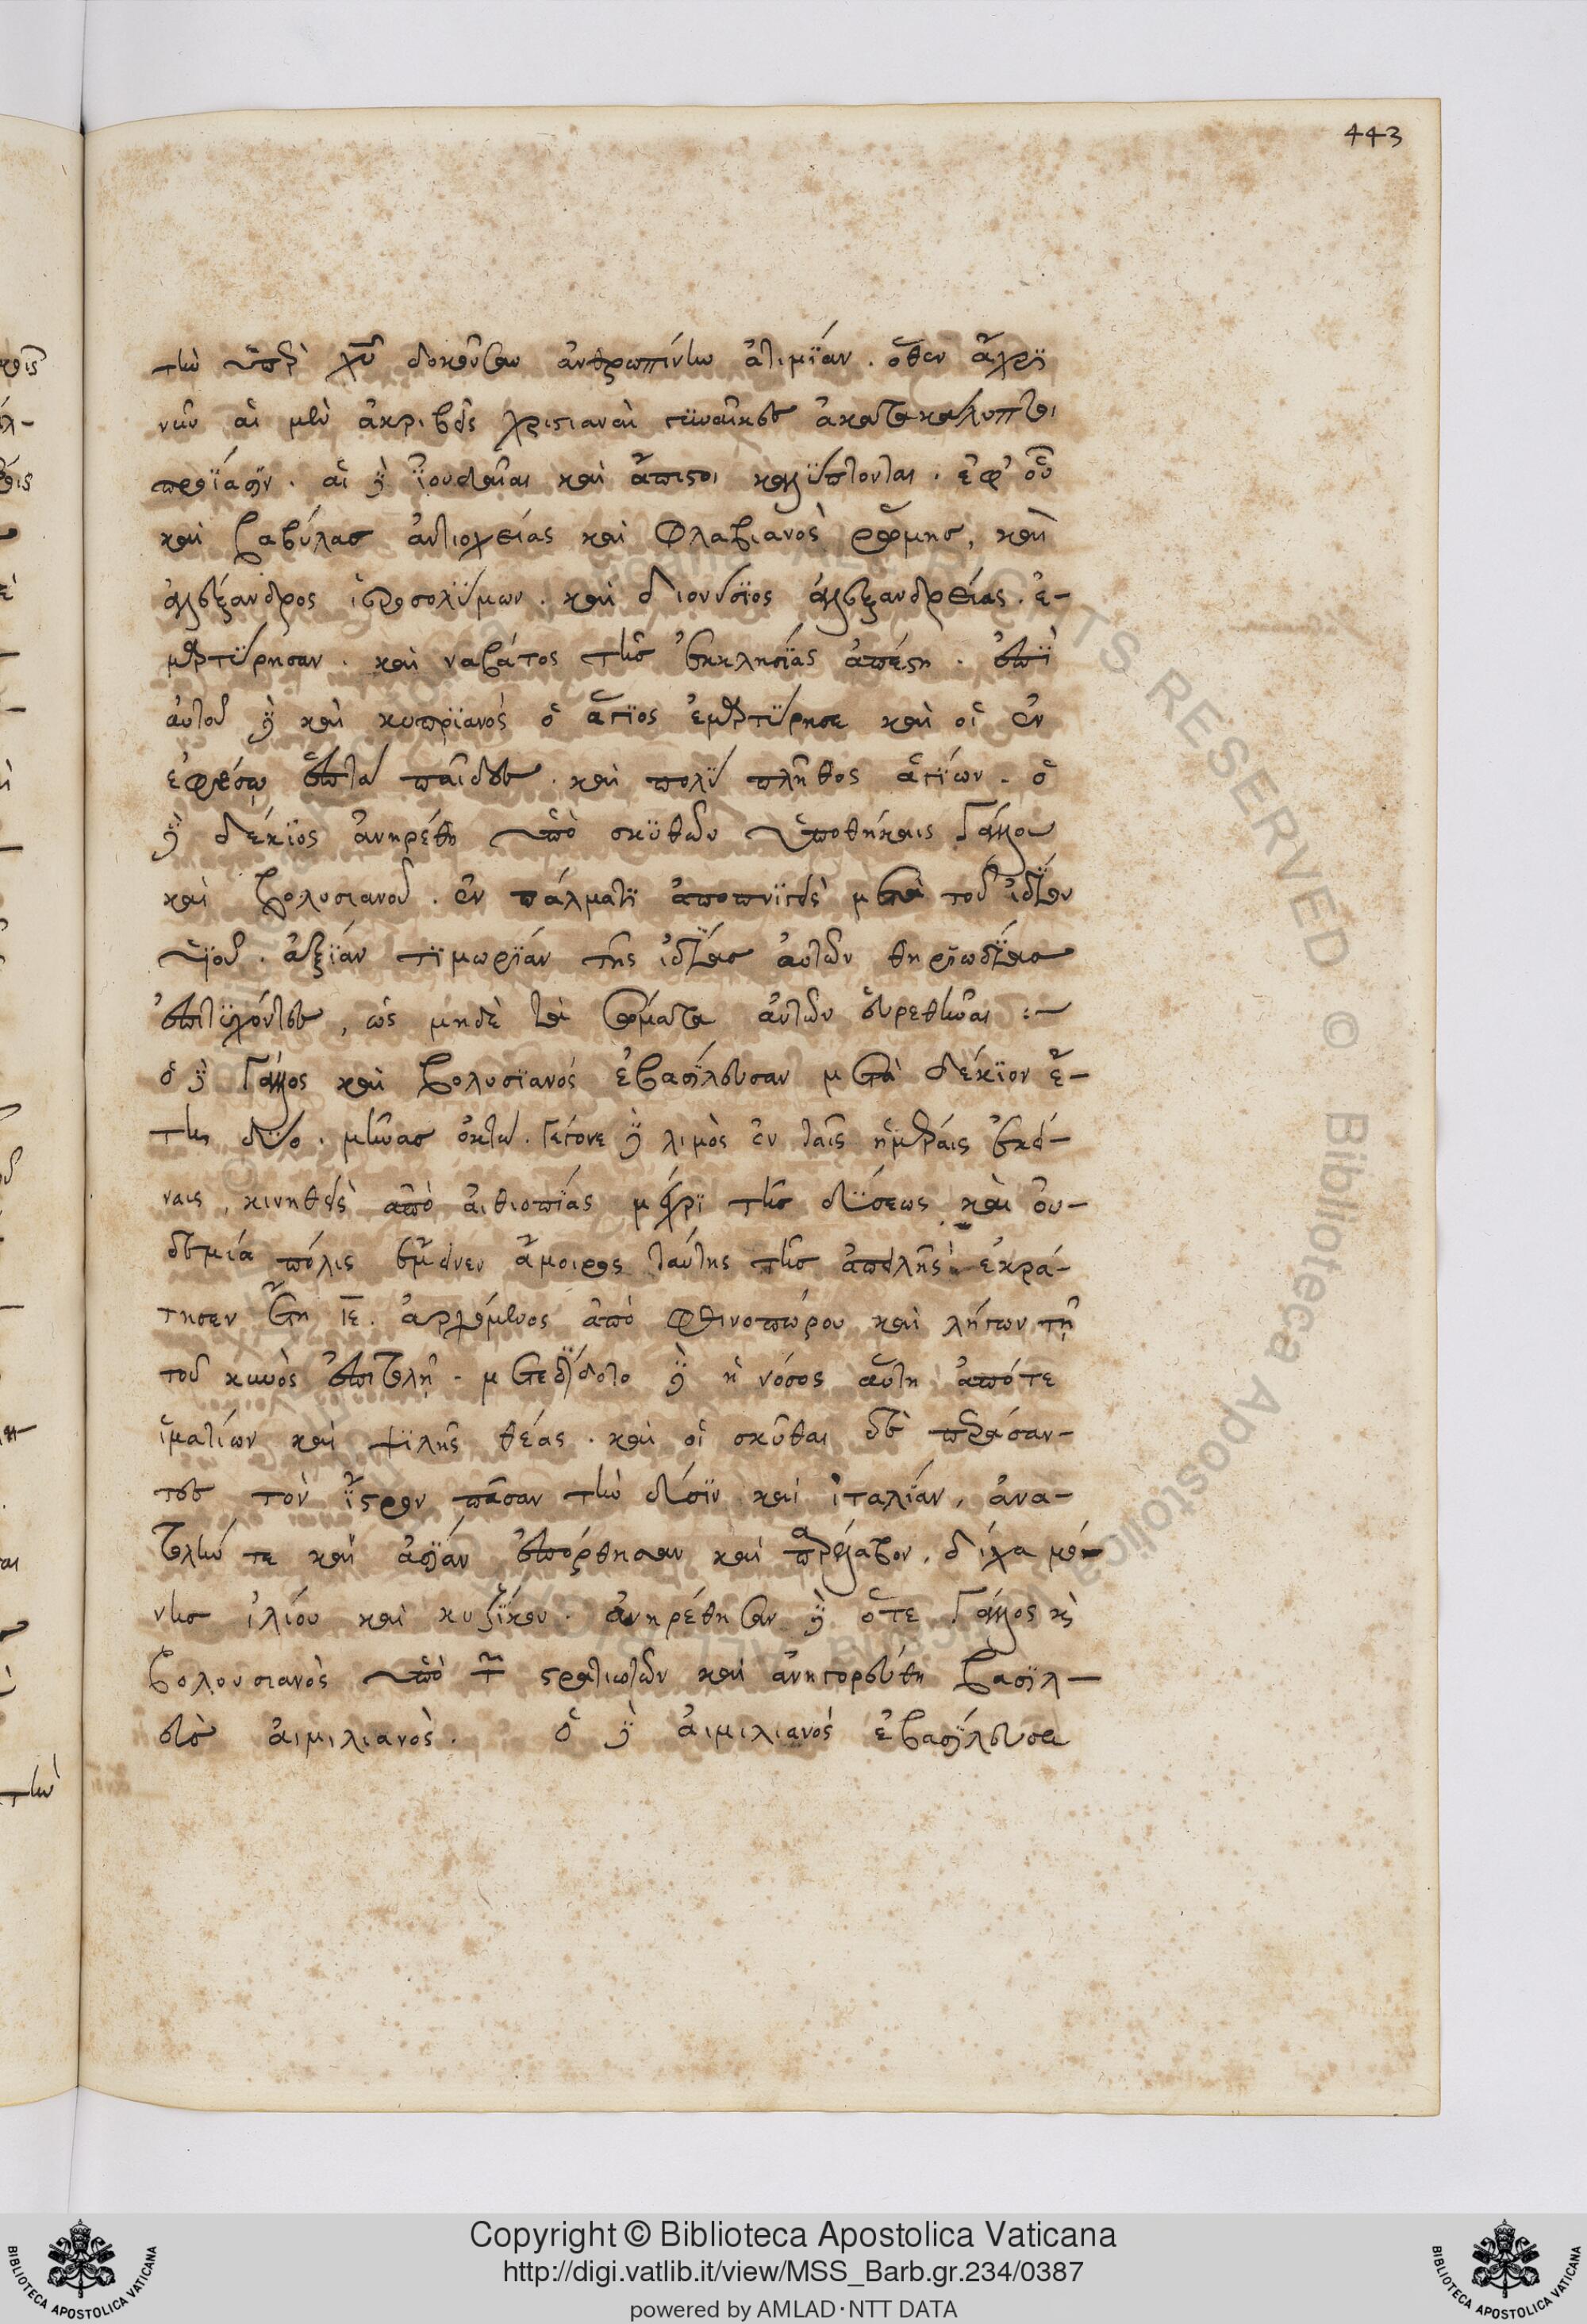 443
τὴν ὑπὲρ χῦ δοκοῦσαν ἀνθρωπίνην ἀτιμΐαν. ὅθεν ἄχρϊ
νῦν αἱ μὲν ἀκριβεῖς χριστιαναὶ γυναῖκες ἀκατακαλύπται
προΐασϊν. αἱ δὲ ϊουδαῖαι καὶ ἄπιστοι καλύπτονται. ἐφ' οὗ
καὶ βαβύλας ἀντιοχείας καὶ Φλαβιανὸς ρώμης, καὶ
ἀλέξανδρος ἱεροσολύμων. καὶ διονύσϊος ἀλεξανδρείας. ἐ-
μαρτύρησαν. καὶ ναβάτος τῆς ἐκκλησΐας ἀπέστη. ἐπὶ
αὐτοῦ δὲ καὶ κυπρϊανός ὁ ἅγϊος ἐμαρτύρησε καὶ οἱ ἐν
ἐφέσῳ ἑπτὰ παῖδες. καὶ πολὺ πλῆθος ἁγΐων. ὁ
δὲ δέκϊος ἀνηρέθη ὑπὸ σκϋθῶν ὑποθήκαις Γάλλου
καὶ βολυσιανοῦ. ἐν τάλματϊ ἀποπνϊγεὶς μετὰ τοῦ ἰδΐου
υἱοῦ. ἀξΐαν τϊμωρΐαν τῆς ἰδΐας αὐτῶν θηρϊωδΐας
ἐπιτυχόντες, ὡς μηδὲ τὰ σώματα αὐτῶν εὑρεθῆναι :~
ὁ δὲ Γάλλος καὶ βολυσϊανός ἐβασΐλευσαν μετὰ δέκϊον ἔ-
τη δύο. μῆνας ὀκτώ. Γέγονε δὲ λιμὸς ἐν ταῖς ἡμέραις ἐκεί-
ναις, κινηθεὶς ἀπὸ αἰθιοπΐας μέχρϊ τῆς δύσεως, καὶ οὐ-
δεμία πόλις ἔμεινεν ἄμοιρος ταύτης τῆς ἀπειλῆς. ἐκρά-
τησεν ἔτη ιε. ἀρχόμενος ἀπὸ φθινοπώρου καὶ λήγων τῇ
τοῦ κυνὸς ἐπιτολῇ. μετεδίδοτο δὲ ἡ νόσος αὕτη ἀπό τε
ἱματίων καὶ ψϊλῆς θέας. καὶ οἱ σκύθαι δὲ περάσαν-
τες τὸν ἴστρον πᾶσαν τὴν δύσϊν καὶ ἰταλΐαν, ἀνα-
τολήν τε καὶ ἀσΐαν ἐπόρθησαν καὶ παρέλαβον, δίχα μό-
νης ἰλίου καὶ κυζΐκου. ἀνηρέθησαν δὲ ὅ τε Γάλλος κὶ
βολουσιανὸς ὑπὸ τῶν στρατιωτῶν καὶ ἀνηγορεύθη βασϊλ-
εὺς αἰμιλιανὸς. ὁ δὲ αἰμιλιανός ἐβασΐλευσε
Copyright © Biblioteca Apostolica Vaticana
http://digi.vatlib.it/view/MSS_Barb.gr.234/0387
powered by AMLAD·NTT DATA